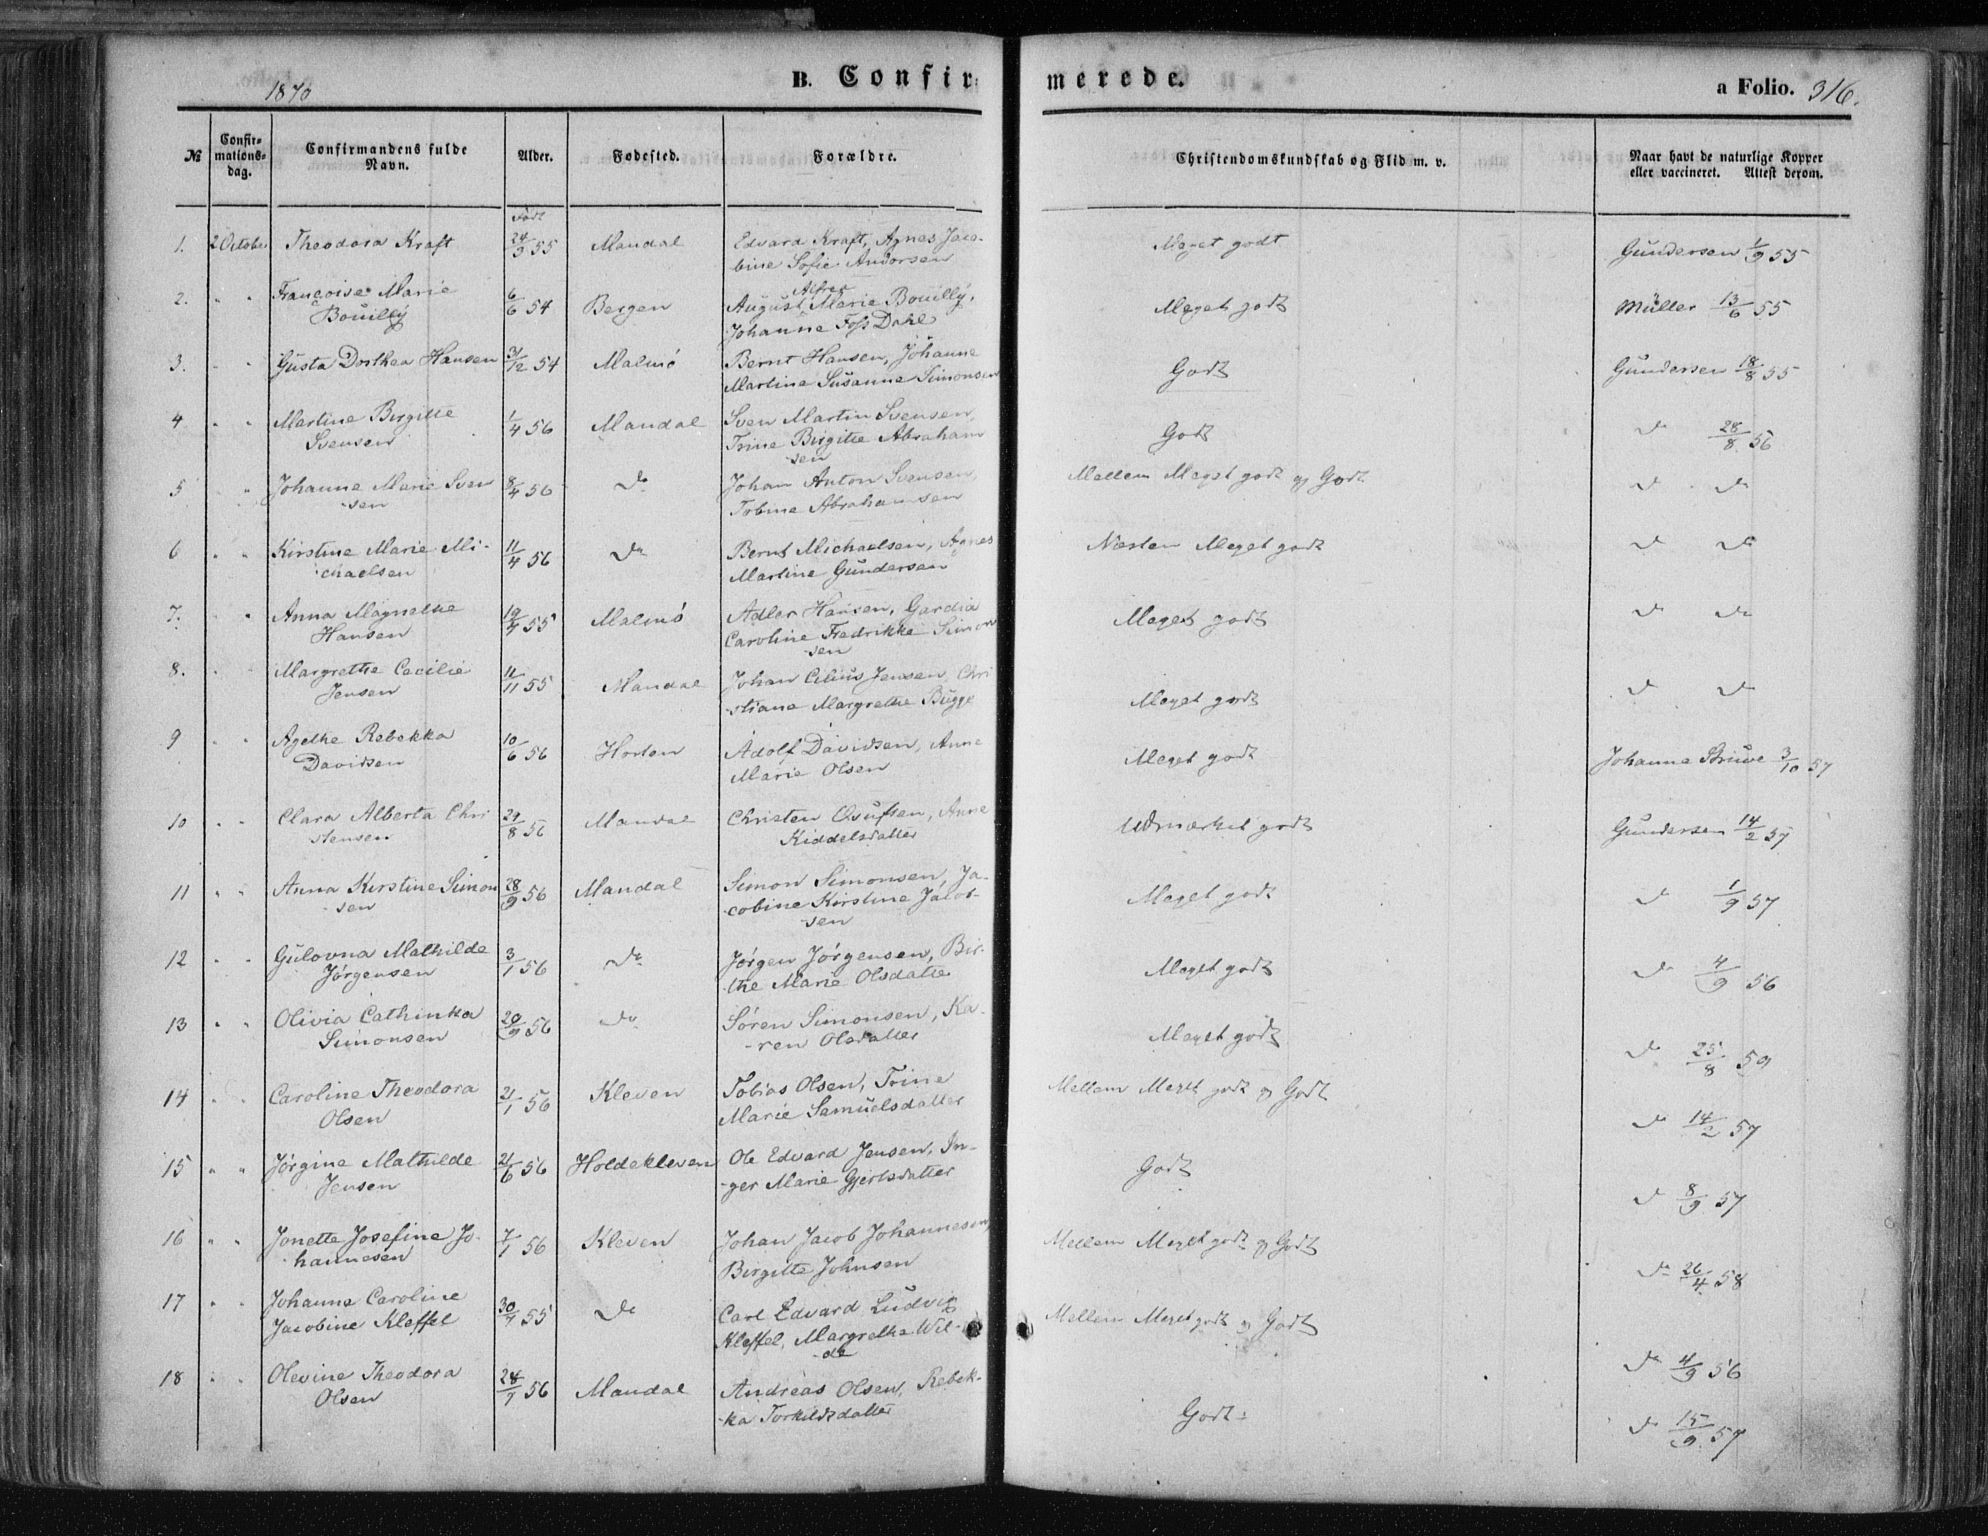 1870 B. Confirmerede. a Folio. 316.
№ Confirmationsdag. Confirmandens fulde Navn. Alder. Fødested. Forældre. Christendomskundskab og Flid m. v. Naar havt de naturlige Kopper eller vaccineret. Attest derom.
Født
1. 2 October Theodora Kraft 24/3 55 Mandal Edvard Kraft, Agnes Jaco- Meget godt Gundersen 1/9 55
bine Sofie Andorsen
2. " " Françoise Marie 6/6 54 Bergen August Alfred Marie Bouilly, Meget godt Müller 13/6 55
Bouilly Johanne Foss Dahl
3. " " Gusta Dorthea Hansen 31/12 54 Malmö Bernt Hansen, Johanne Godt Gundersen 18/8 55
Martine Susanne Simonsen
4 " " Martine Birgitte 1/4 56 Mandal Sven Martin Svensen, Godt do 28/8 56
Svensen Trine Birgitte Abraham
-sen
5 " " Johanne Marie Sven 8/4 56 do Johan Anton Svensen, Mellem Meget godt og Godt do do
-sen Tobine Abrahamsen
6 " " Kirstine Marie Mi- 11/4 56 do Bernt Michaelsen, Agnes Næsten Meget godt do do
chaelsen Martine Gundersen
7. " " Anna Magnethe 19/4 55 Malmö Adler Hansen, Gardia Meget godt do do
Hansen Caroline Fredrikke Simon
-sen
8. " " Margrethe Cecilie 11/11 55 Mandal Johan Cilius Jensen, Chri Meget godt do do
Jensen stiane Margrethe Bugge
9 " " Agethe Rebekka 10/6 56 Horten Adolf Davidsen, Anne Meget godt Johanne Struve 3/10 57
Davidsen Marie Olsen
10 " " Clara Alberta Chri 29/8 56 Mandal Christen Osufsen, Anne Udmærket godt Gundersen 14/2 57
stensen Kiddelsdatter
11 " " Anna Kirstine Simon 28/9 56 Mandal Simon Simonsen, Ja- Meget godt do 1/9 57
-sen cobine Kirstine Jacob-
-sen
12 " " Gulovna Mathilde 3/1 56 do Jørgen Jørgensen, Bir- Meget godt do 4/9 56
Jørgensen the Marie Olsdatter
13 " " Olivia Cathinka 20/9 56 do Søren Simonsen, Ka- Meget godt do 25/8 59
Simonsen -ren Olsdatter
14 " " Caroline Theodora 21/1 56 Kleven Tobias Olsen, Trine Mellem Meget godt og Godt do 14/2 57
Olsen Marie Samuelsdatter
15 " " Jørgine Mathilde 21/6 56 Holdekleven Ole Edvard Jensen, In- Godt do 8/9 57
Jensen ger Marie Gjertsdatter
16 " " Jonette Josefine Jo- 7/1 56 Kleven Johan Jacob Johannesen, Mellem Meget godt og Godt do 26/4 58
hannesen Birgitte Johnsen
17 " " Johanne Caroline 30/7 55 do Carl Edvard Ludvig Mellem Meget godt og Godt do 4/9 56
Jacobine Kleffel Kleffel, Margrethe Wil-
-de
18 " " Olevine Theodora 24/7 56 Mandal Andreas Olsen, Rebek- Godt do 15/9 57
Olsen ka Torkildsdatter